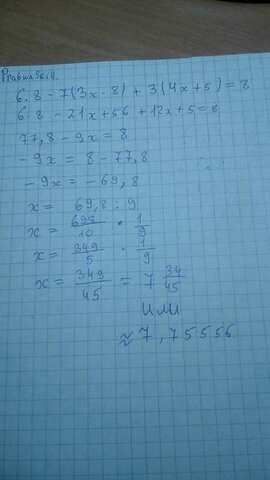 6.8 - 7(3x - 8) + 3(4x + 5) = 8
6.8 - 21x + 56 + 12x + 5 = 8
77,8 - 9x = 8
-9x = 8 - 77,8
-9x = -69,8
x = 69,8 : 9
x = 698/10 · 1/9
x = 349/5 · 1/9
x = 349/45 = 7 34/45
или
≈ 7,75556